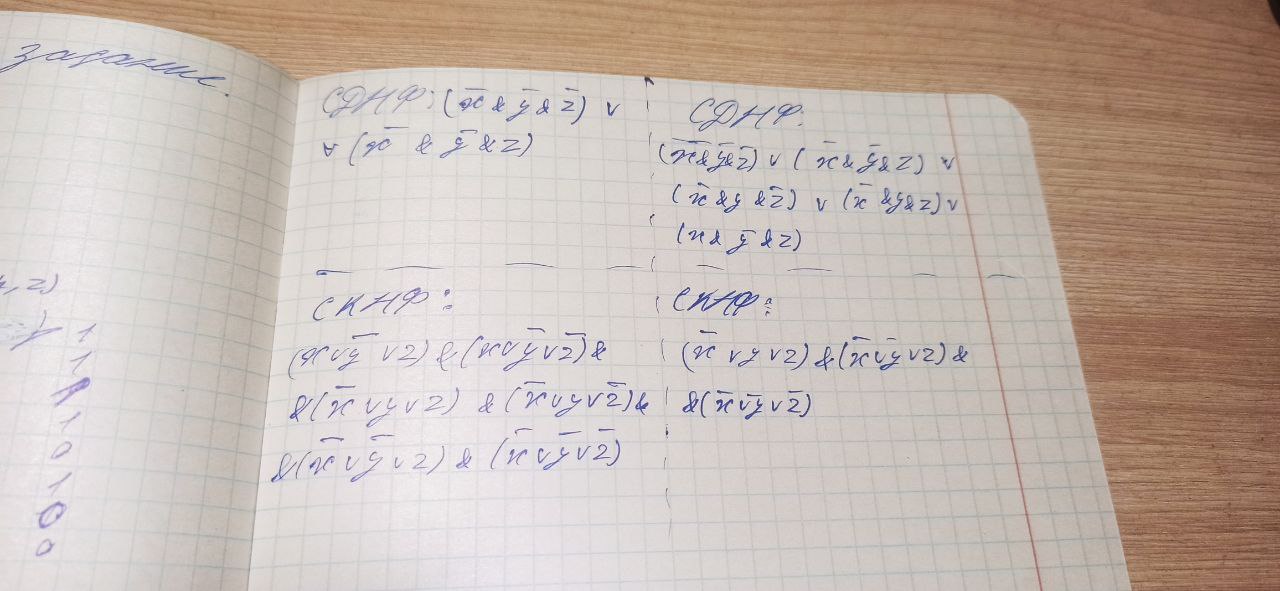 задание.
, z)
1
1
1
1
0
1
0
0
СДНФ: (x̄ & ȳ & z̄) ∨
∨ (x̄ & ȳ & z)
СКНФ:
(x ∨ ȳ ∨ z) & (x ∨ ȳ ∨ z̄) &
& (x̄ ∨ y ∨ z) & (x̄ ∨ y ∨ z̄) &
& (x̄ ∨ ȳ ∨ z) & (x̄ ∨ ȳ ∨ z̄)
СДНФ:
(x̄ & ȳ & z̄) ∨ (x̄ & ȳ & z) ∨
(x̄ & y & z̄) ∨ (x̄ & y & z) ∨
(x & ȳ & z)
СКНФ:
(x̄ ∨ y ∨ z) & (x̄ ∨ ȳ ∨ z) &
& (x̄ ∨ ȳ ∨ z̄)